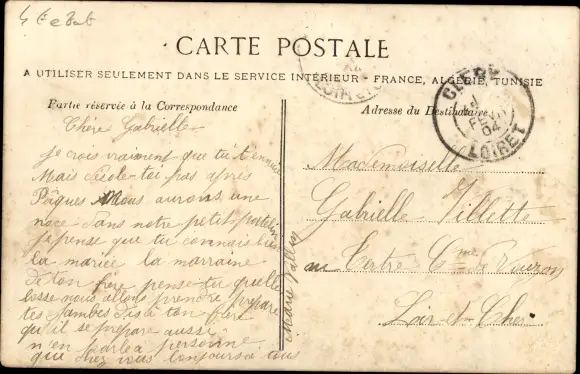 CARTE POSTALE
A UTILISER SEULEMENT DANS LE SERVICE INTÉRIEUR - FRANCE, ALGÉRIE, TUNISIE
Partie réservée à la Correspondance
Chère Gabrielle
je crois vraiment que tu t'ennuie
Mais désole-tu pas après
Pâques Nous aurons une
noce dans notre petit
je pense que tu connais bien
la mariée la marraine
de ton père pense-tu quelle
bosse nous allons prendre prépare
tes jambes dis à ton père
qu'il se prépare aussi
n'en parle a personne
que chez vous toujours a tous
Marie
Adresse du Destinataire
CLERY
FEVR
04
LOIRET
Mademoiselle
Gabrielle Villette
au Tertre Cne
Loir-et-Cher